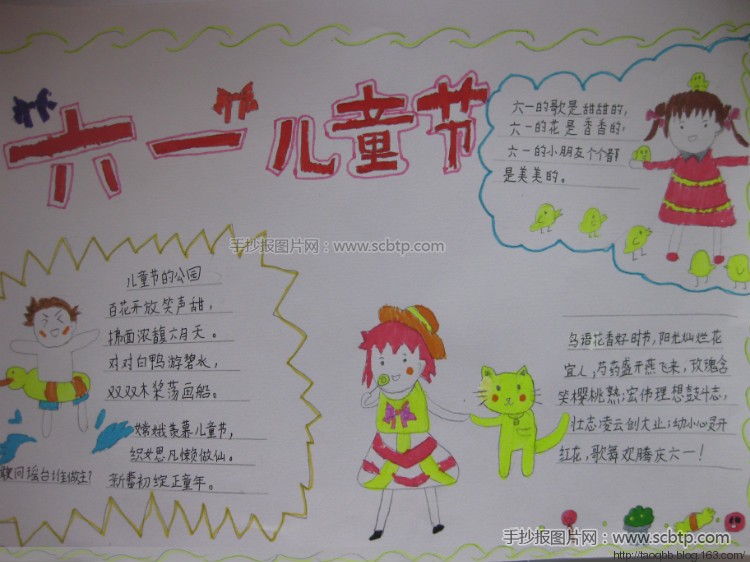 “六一”儿童节
六一的歌是甜甜的，
六一的花是香香的；
六一的小朋友个个都
是美美的。
手抄报图片网：www.scbtp.com
儿童节的公园
百花开放笑声甜，
拂面浓馥六月天。
对对白鸭游碧水，
双双木桨荡画船。
嫦娥羡慕儿童节，
织女思凡懒做仙。
敢问瑶台谁做主？
新蕾初绽正童年。
鸟语花香好时节，阳光灿烂花
宜人，芍药盛开燕飞来，玫瑰含
笑樱桃熟；宏伟理想鼓斗志，
壮志凌云创大业；幼小心灵开
红花，歌舞欢腾庆六一！
手抄报图片网：www.scbtp.com
http://taoqbb.blog.163.com/